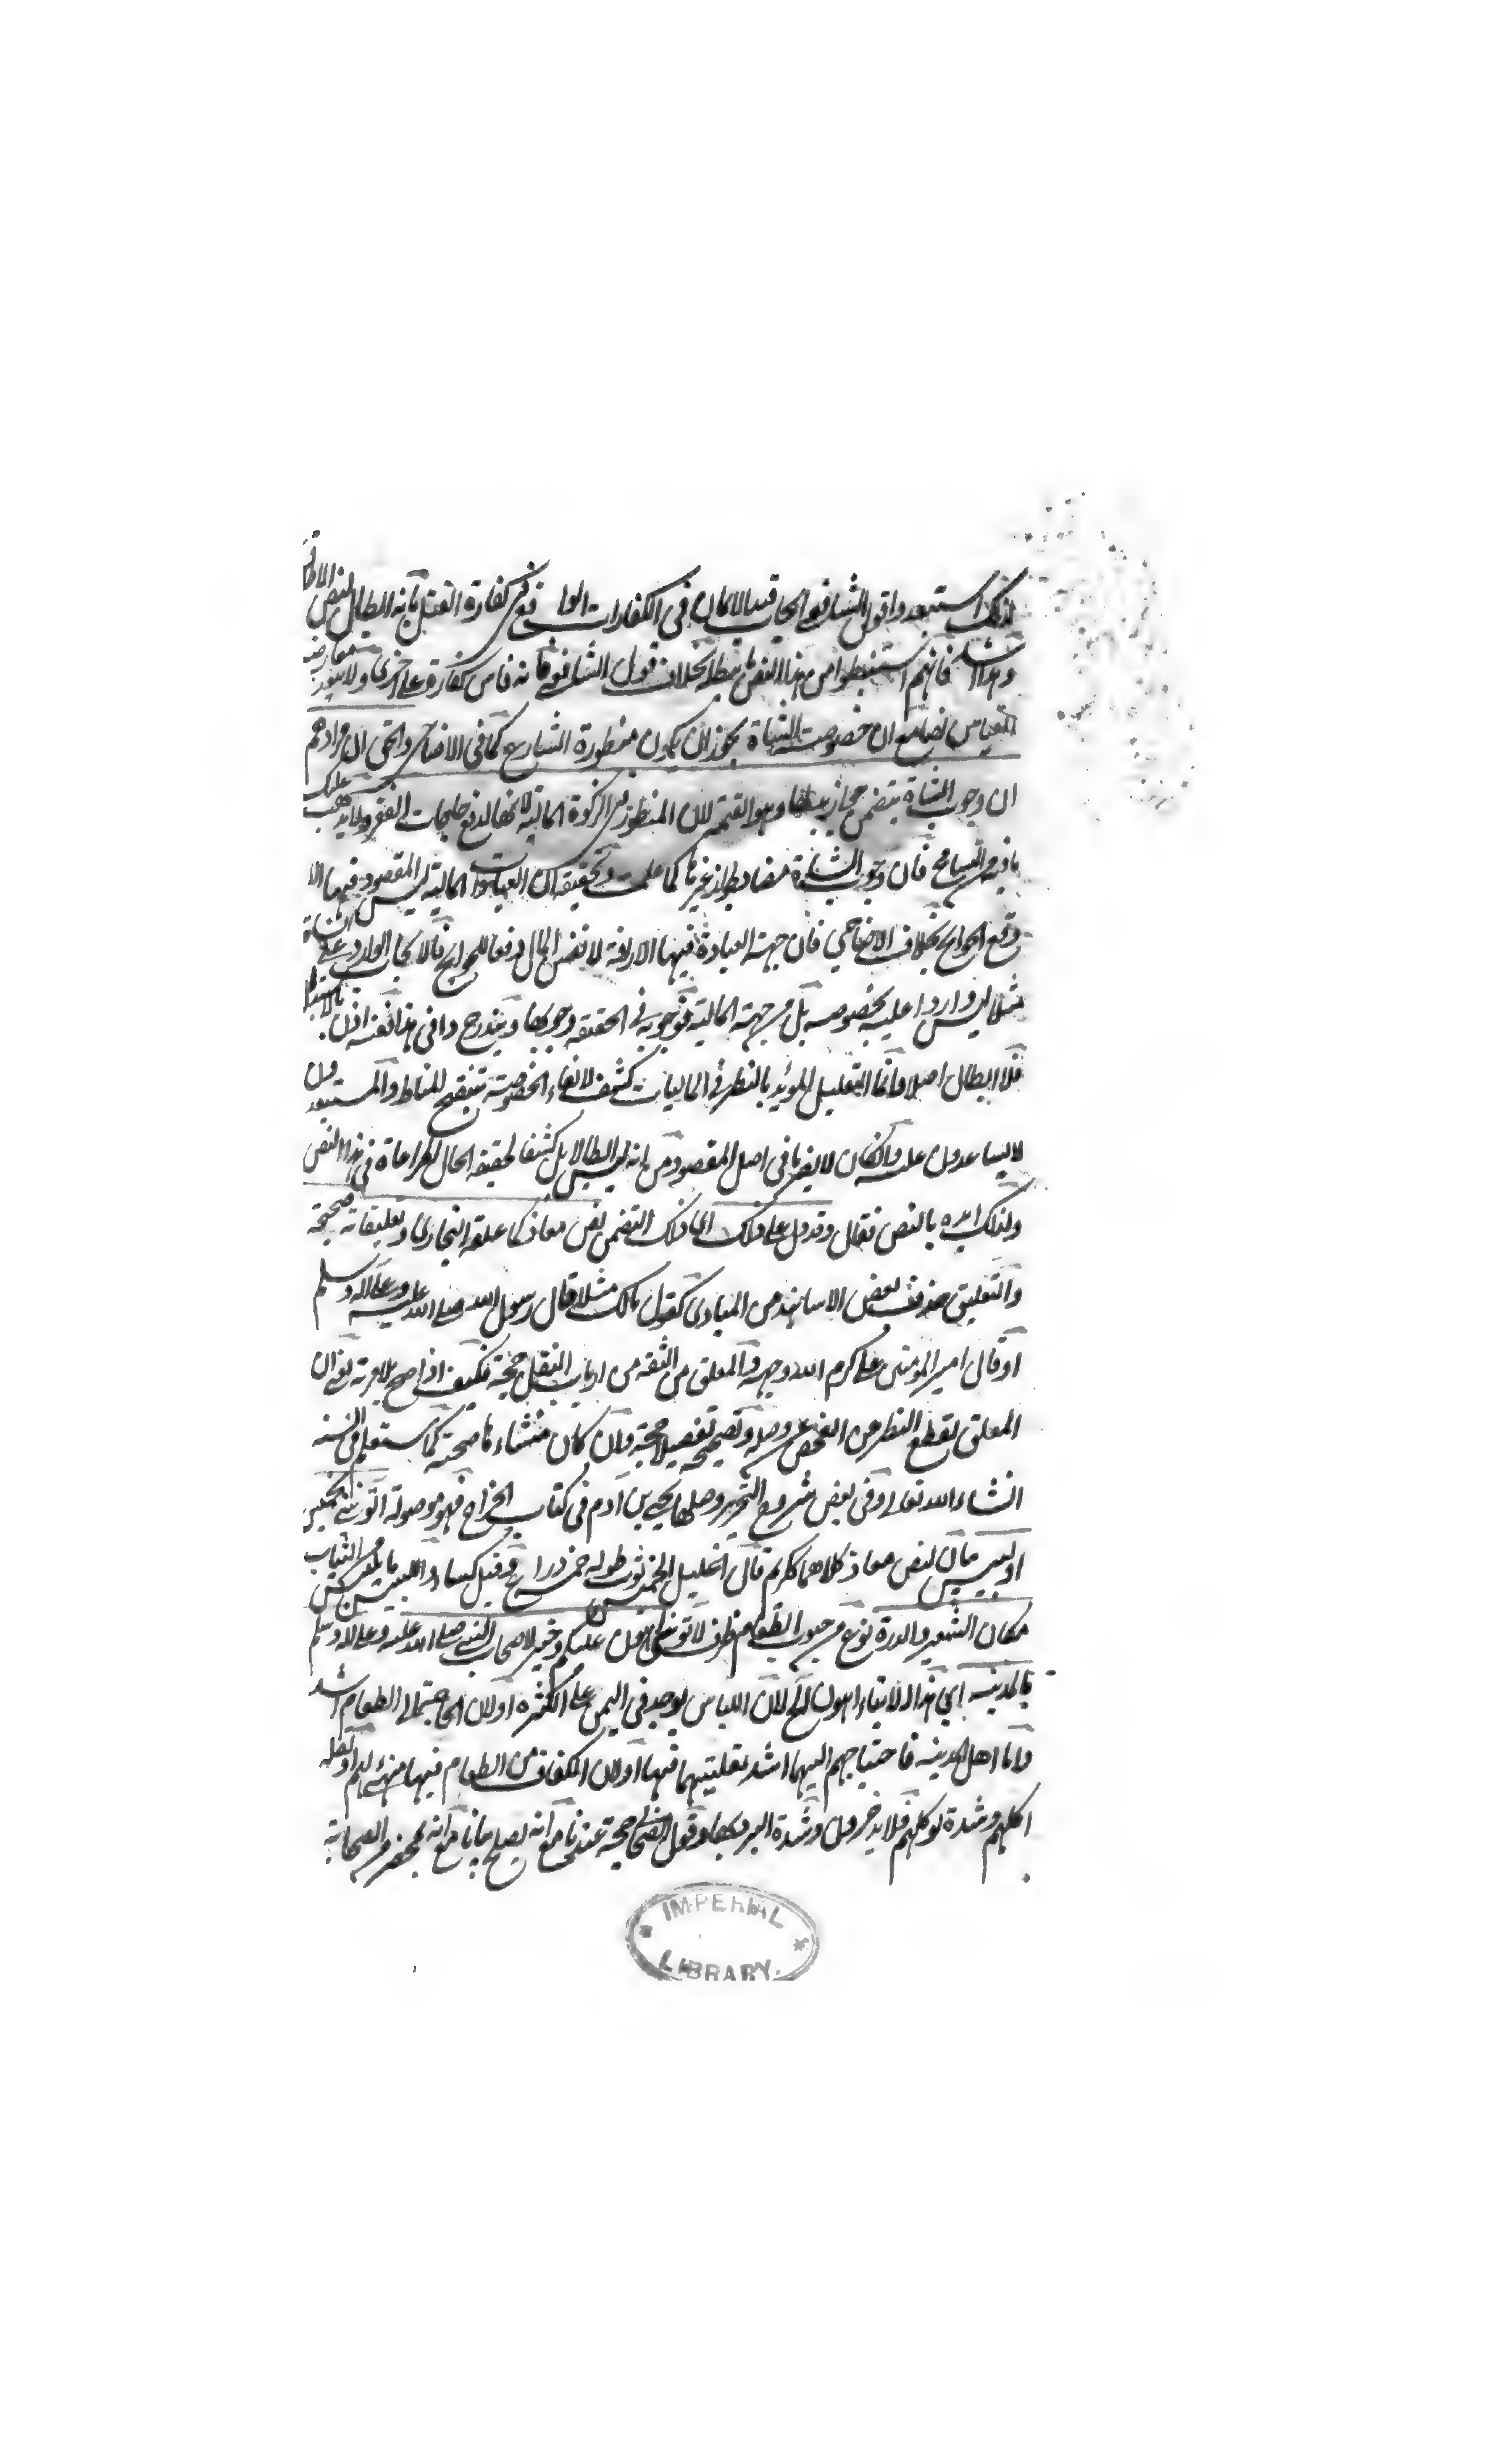 لذلك استبعدوا قول الشافعي ايجاب قيد الايمان في الكفارات الواقع في كفارة القتل بانه ابطال لنص الاطلاق
وهذا اشد فانهم استنبطوا من هذا النص ما يبطله بخلاف قول الشافعي فانه قاس كفارة على اخرى ولا يبعد معارضة
القياس نصا مع ان خصوصية الشاة يجوز ان يكون منظورة الشارع كما في الاضاحي والحق ان مرادهم
ان وجوب الشاة يتضمن وهو القيمة لان المنظور في الزكوة المالية لانها لدفع حاجات الفقير ولا يذهب عليك
ما فيه من التسامح فان وجوب الشاة كما علمت وتحقيقه ان العبادات المالية ليس المقصود فيها الا
دفع الحوائج بخلاف الاضاحي فان جهة العبادة فيها الاراقة لا نفس المال دفعا للحوائج فالايجاب الوارد على الشاة
مثلا ليس واردا عليه بخصوصه بل من جهة المالية فوجوبه في الحقيقة وجوبها ويندرج دافى هذا فعند اذن بالاستبدال
فلا ابطال اصلا وانما التعليل المؤيد بالنظر في الماليات كشف لالغاء الخصوصية تنقيح للمناط والمستبعدون
لا يساعدون عليه وان كان لا يضر ما في اصل المقصود من انه ليس ابطالا بل كشفا لحقيقة الحال المراعاة في هذا النص
ولذلك ايده بالنص فقال وقد دل على ذلك اي ذلك التضمن نص معاذ كما علقه البخاري وتعليقاته صحيحة
والتعليق حذف بعض الاسانيد من المبادى كقول مالك مثلا قال رسول الله صلى الله عليه وعلى اله وسلم
او قال امير المؤمنين علي كرم الله وجهه والمعلق من الثقة من ارباب النقل حجة فكيف اذا صح بالمرة يعني ان
المعلق بقطع النظر عن الفحص عن وصله وتصحيحه تفصيلا حجة وان كان منشاء ما صحته كما ستعلم في السنة
انشاء الله تعالى وفي بعض شروح التحرير وصلها يحيى بن ادم في كتاب الخراج فهو موصولة ائتوني بخميس
او لبيس مآل لنص معاذ كلاهما ككريم قال الخليل الخميس ثوب طوله خمس ذراع وقيل كساء واللبيس ما يلبس من الثياب
مكان الشعير والذرة نوع من حبوب الطعام ظرف لائتوني اهون عليكم وخير لاصحاب النبي صلى الله عليه وعلى اله وسلم
بالمدينة اي هذا الايتاء اهون الخ لان اللباس يوجد في اليمن على الكثرة او لان الحاجة الى الطعام اشد
واما اهل المدينة فاحتياجهم اليهما اشد لقلتيهما فيها او لان الكفاف من الطعام فيها منهئ لهم او لقلة
اكلهم وشدة توكلهم فلا يدخرون وشدة البرد بها وقول الصحابي حجة عندنا مع انه يصلح بيانا مع انه بمحضر من الصحابة
IMPERIAL
LIBRARY.